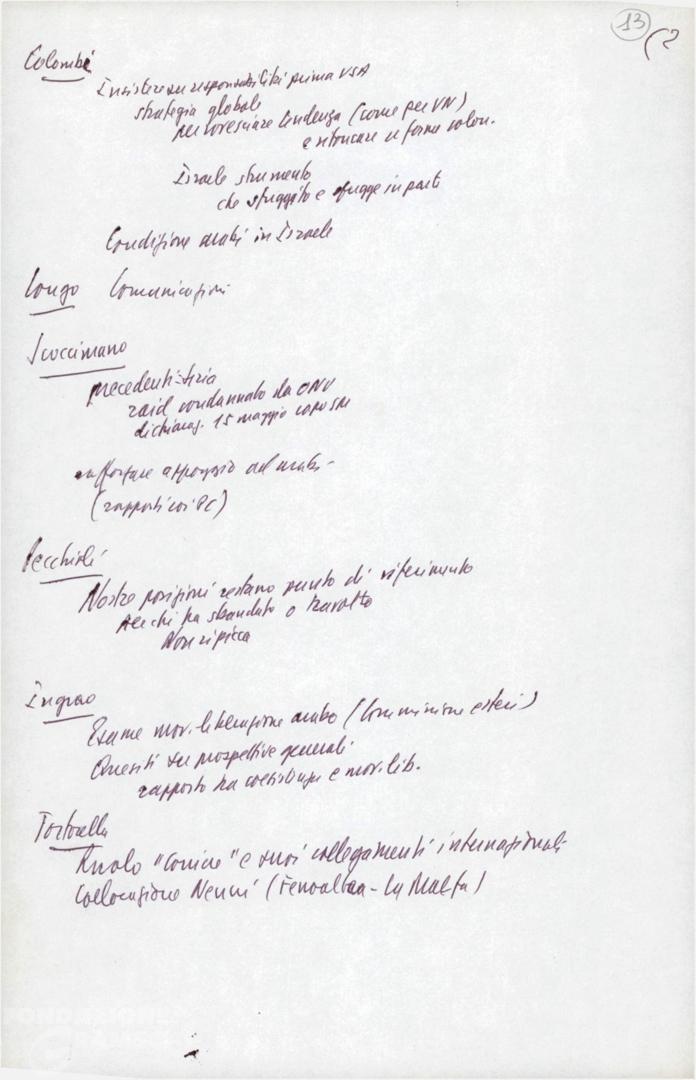 13 (2
Colombi
Insistere su responsabilità prima USA
strategia globale
per rovesciare tendenza (come per VN)
e ritoccare in forme colon.
Israele strumento
che sfuggito e sfugge in parte
Condizione arabi in Israele
Longo Comunicazioni
Scoccimarro
precedenti: Siria
raid condannato da ONU
dichiaraz. 15 maggio
rafforzare appoggio ad arabi -
(rapporti coi PC)
Pecchioli
Nostre posizioni restano punto di riferimento
per chi ha sbandato o travolto
Non ripicca
Ingrao
Esame mov. liberazione arabo (Commissione esteri)
Quesiti su prospettive generali
rapporto tra coesistenza e mov. lib.
Tortorella
Ruolo "Corriere" e suoi collegamenti internazionali
Collocazione Nenni (Fenoaltea - La Malfa)